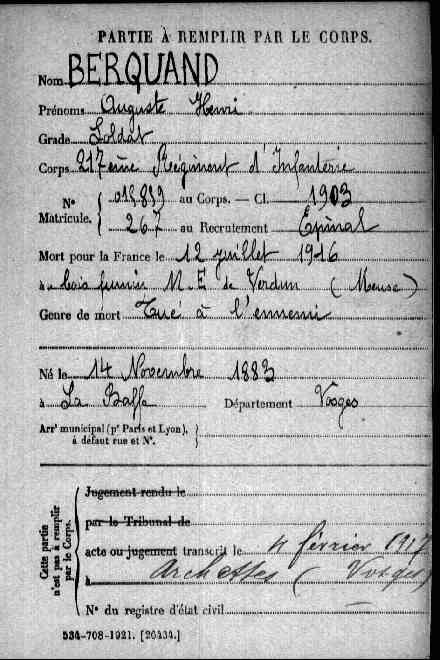 PARTIE À REMPLIR PAR LE CORPS.
Nom BERQUAND
Prénoms Auguste Henri
Grade Soldat
Corps 217ème Régiment d'Infanterie
N° Matricule. { 015889 au Corps. — Cl. 1903
267 au Recrutement Epinal
Mort pour la France le 12 juillet 1916
à bois fumin N.E de Verdun (Meuse)
Genre de mort Tué à l'ennemi
Né le 14 Novembre 1883
à La Baffe Département Vosges
Arr^t municipal (p^r Paris et Lyon), à défaut rue et N°. }
Cette partie n'est pas à remplir par le Corps.
Jugement rendu le
par le Tribunal de
acte ou jugement transcrit le 4 février 1917
à Archettes (Vosges)
N° du registre d'état civil
534-708-1921. [26434.]